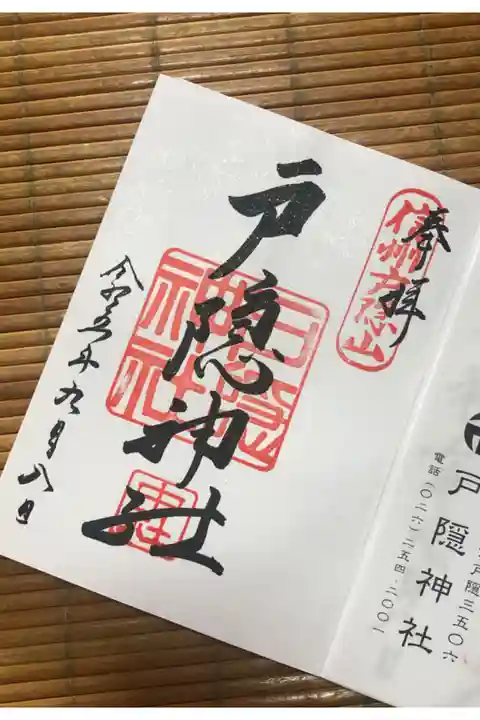 奉拝
信州戸隠山
戸隠神社
戸隠神社
令和五年九月八日
戸隠三五〇六
戸隠神社
電話(〇二六)二五四・二〇〇一